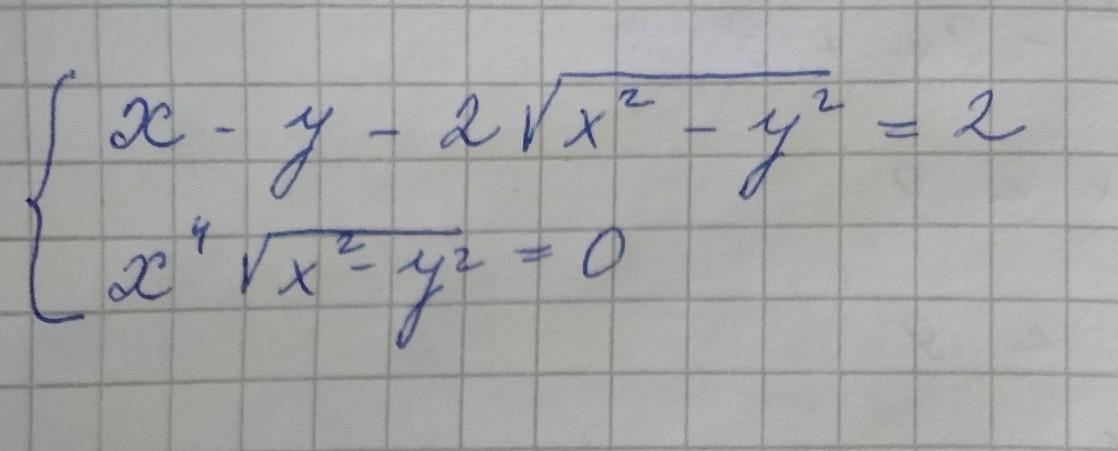 x - y - 2√(x² - y²) = 2
x⁴ √(x² - y²) = 0